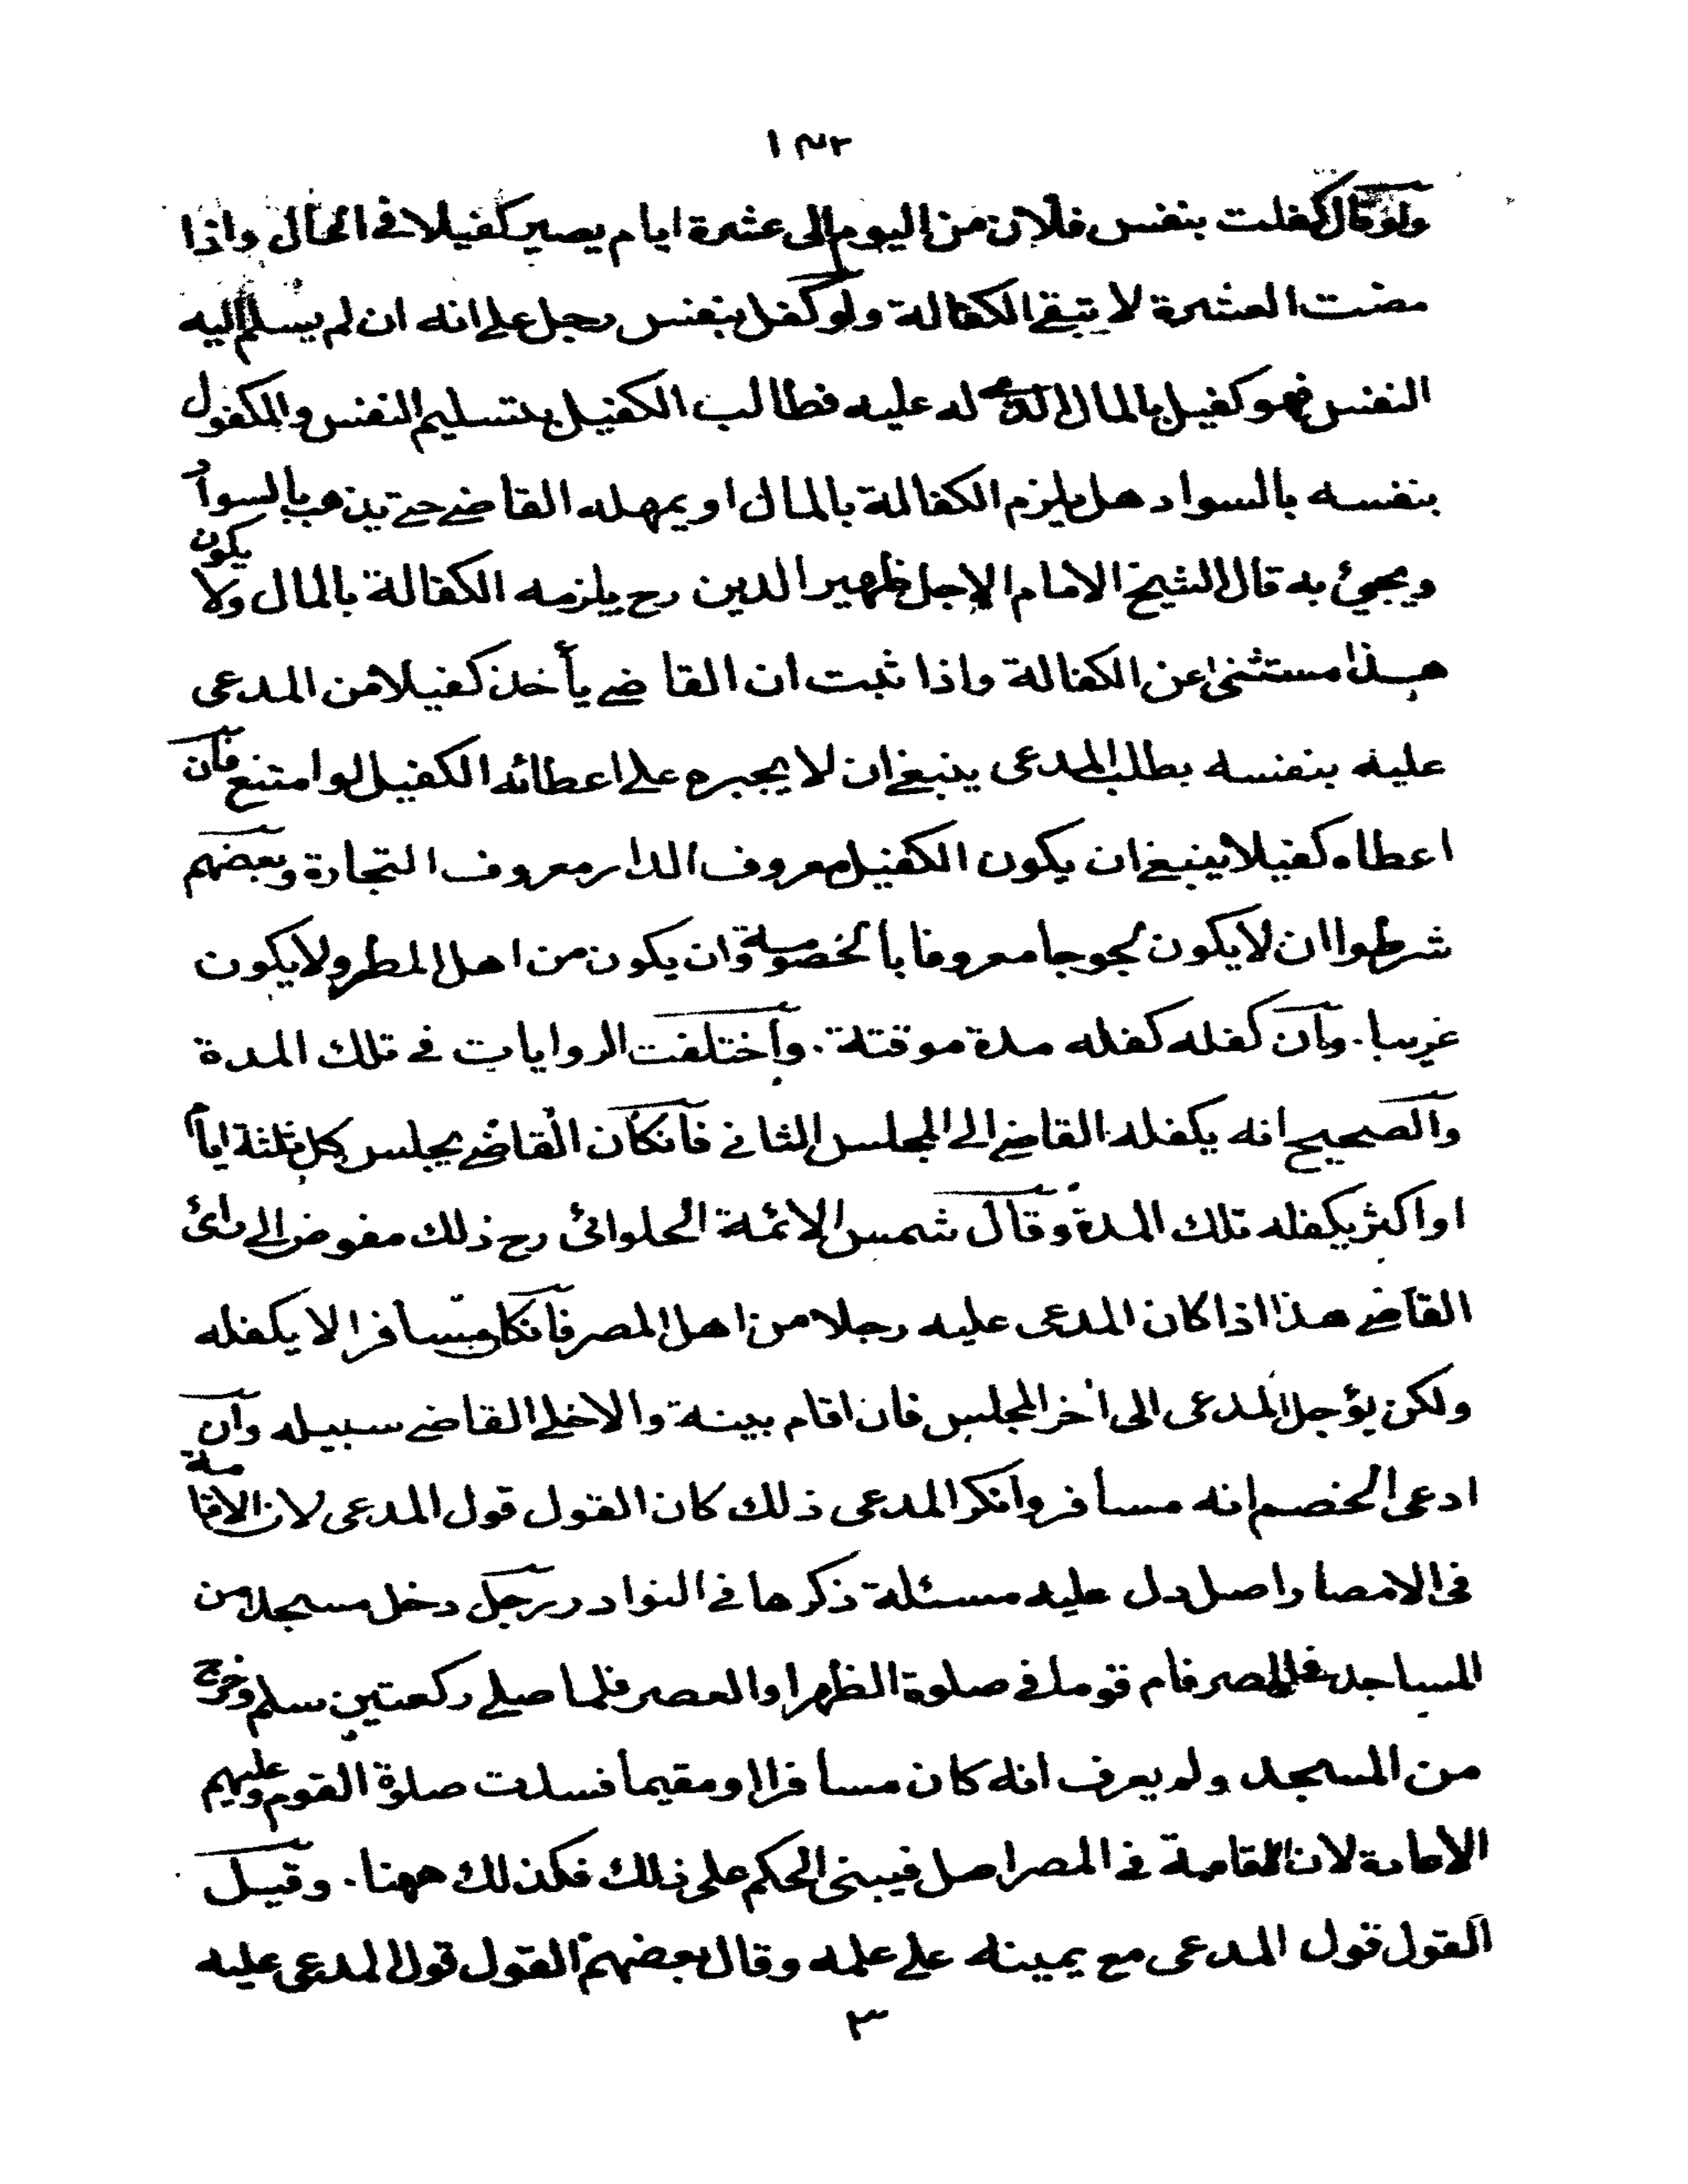 ١٣٢
ولو قال كفلت بنفس فلان من اليوم الى عشرة ايام يصير كفيلا في الحال واذا
مضت العشرة لا تبقى الكفالة ولو كفل بنفس رجل على انه ان لم يسلم اليه
النفس فهو كفيل بالمال الذي له عليه فطالب الكفيل بتسليم النفس والمكفول
بنفسه بالسواد هل يلزم الكفالة بالمال او يمهله القاضي حتى يذهب بالسواد
ويجيئ به قال الشيخ الامام الاجل ظهير الدين رح يلزمه الكفالة بالمال ولا يكون
هذا مستثنى عن الكفالة واذا ثبت ان القاضي يأخذ كفيلا من المدعى
عليه بنفسه بطلب المدعى ينبغي ان لا يجبره على اعطائه الكفيل لو امتنع فان
اعطاه كفيلا ينبغي ان يكون الكفيل معروف الدار معروف التجارة وبعضهم
شرطوا ان لا يكون لجوجا معروفا بالخصومة وان يكون من اهل المطر ولا يكون
غريبا . وان كفله كفله مدة موقتة . واختلفت الروايات في تلك المدة
والصحيح انه يكفله القاضي الى المجلس الثاني فانكان القاضي يجلس كل ثلثة ايام
او اكثر يكفله تلك المدة وقال شمس الائمة الحلوائى رح ذلك مفوض الى رائ
القاضي هذا اذا كان المدعى عليه رجلا من اهل المصر فانكان مسافرا لا يكفله
ولكن يؤجل المدعى الى اخر المجلس فان اقام بينة والا خلى القاضي سبيله وان
ادعى الخصم انه مسافر وانكر المدعى ذلك كان القول قول المدعى لان الاقامة
في الامصار اصل دل عليه مسئلة ذكرها في النوادر رجل دخل مسجدا من
المساجد في المصر فام قوما في صلوة الظهر او العصر فلما صلى ركعتين سلم وخرج
من المسجد ولم يعرف انه كان مسافرا او مقيما فسدت صلوة القوم وعليهم
الاعادة لان المقامة في المصر اصل فيبنى الحكم على ذلك فكذلك ههنا . وقيل
القول قول المدعى مع يمينه على علمه وقال بعضهم القول قول المدعى عليه
٣